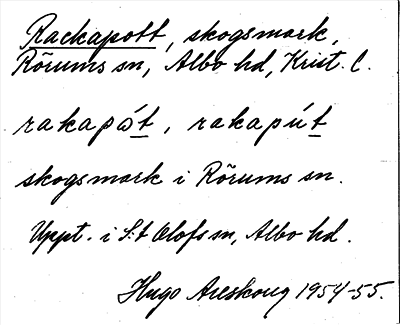 Rackapott, skogsmark,
Rörums sn, Albo hd, Krist. l.
rakapǻt, rakapút
skogsmark i Rörums sn.
Uppt. i S:t Olofs sn, Albo hd.
Hugo Areskoug 1954-55.